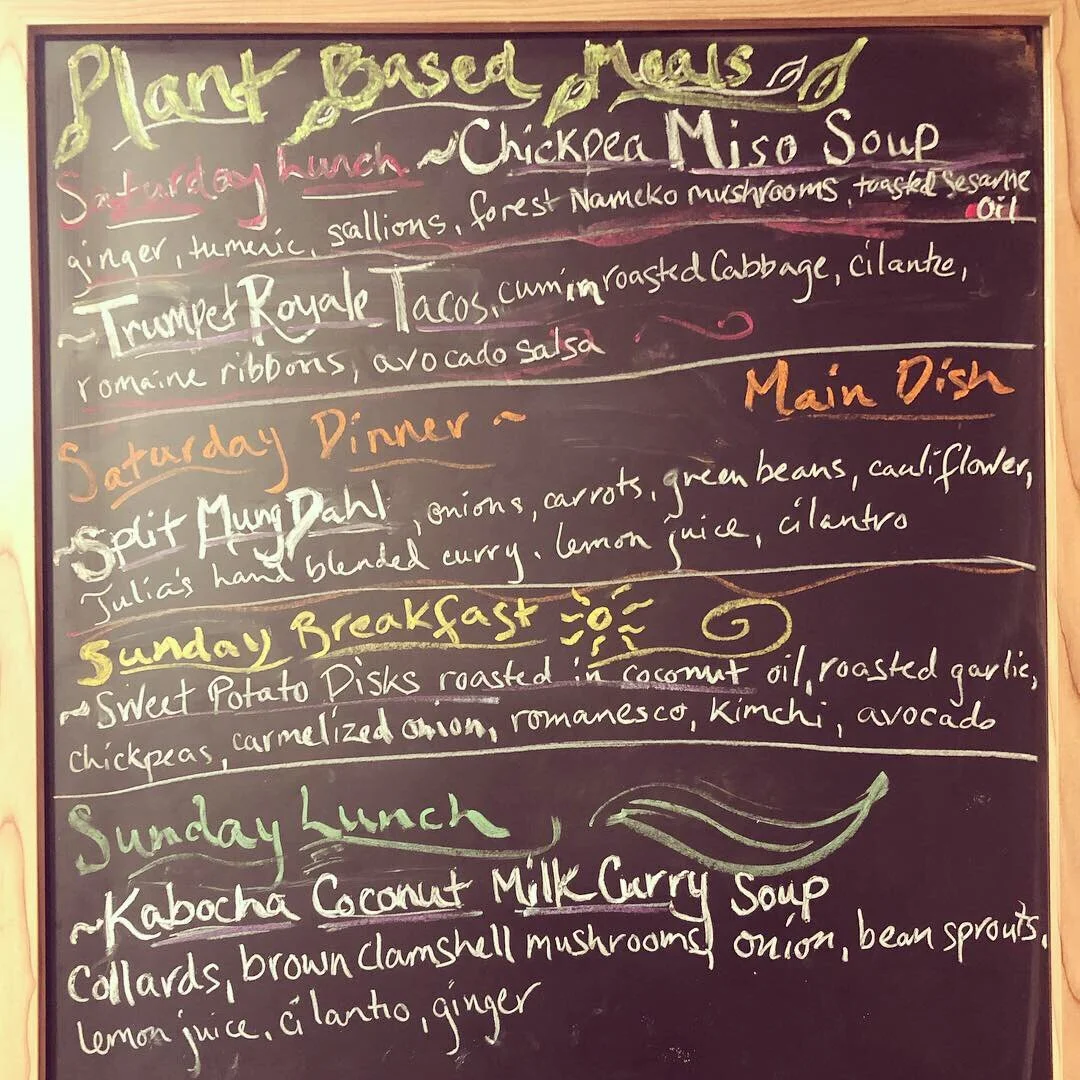 Plant Based Meals
Saturday Lunch ~Chickpea Miso Soup
ginger, tumeric, scallions, forest Nameko mushrooms, toasted Sesame
Oil
~Trumpet Royale Tacos, cumin roasted Cabbage, cilantro,
romaine ribbons, avocado salsa
Saturday Dinner ~ Main Dish
~Split Mung Dahl, onions, carrots, green beans, cauliflower,
Julia's hand blended curry, lemon juice, cilantro
Sunday Breakfast
~Sweet Potato Disks roasted in coconut oil, roasted garlic,
chickpeas, carmelized onion, romanesco, kimchi, avocado
Sunday Lunch
~Kabocha Coconut Milk Curry Soup
Collards, brown clamshell mushrooms, onion, bean sprouts,
lemon juice, cilantro, ginger